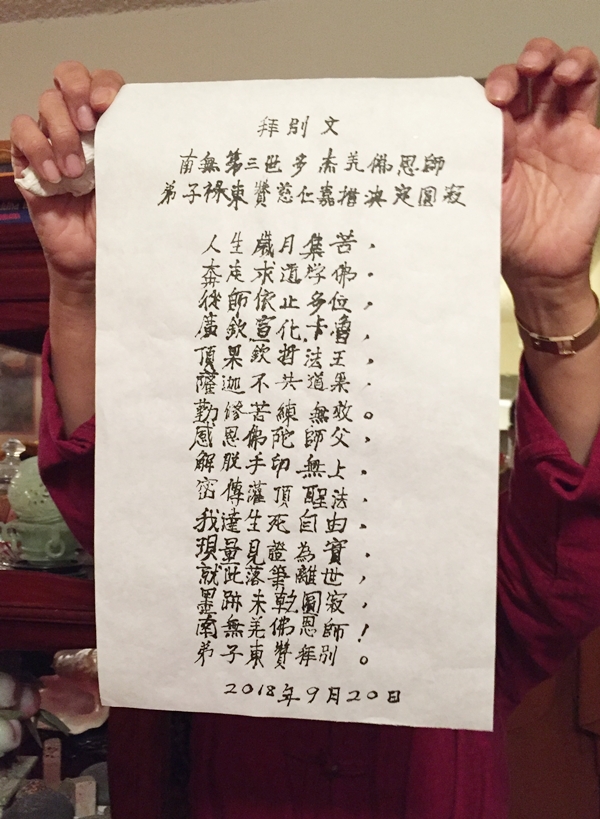 拜别文
南無第三世多杰羌佛恩師
弟子祿東贊慈仁嘉措決定圓寂
人生歲月集苦，
奔走求道学佛。
後師依止多位，
薩欽宣化卡魯，
頂果欽哲法王，
薩迦不共道果，
勤修苦練無数。
感恩佛陀師父，
解脱手印無上。
密傳灌頂聖法，
我達生死自由。
現量見證為實，
就此落筆離世，
墨跡未乾圓寂，
南無羌佛恩師！
弟子東贊拜别。
2018年9月20日